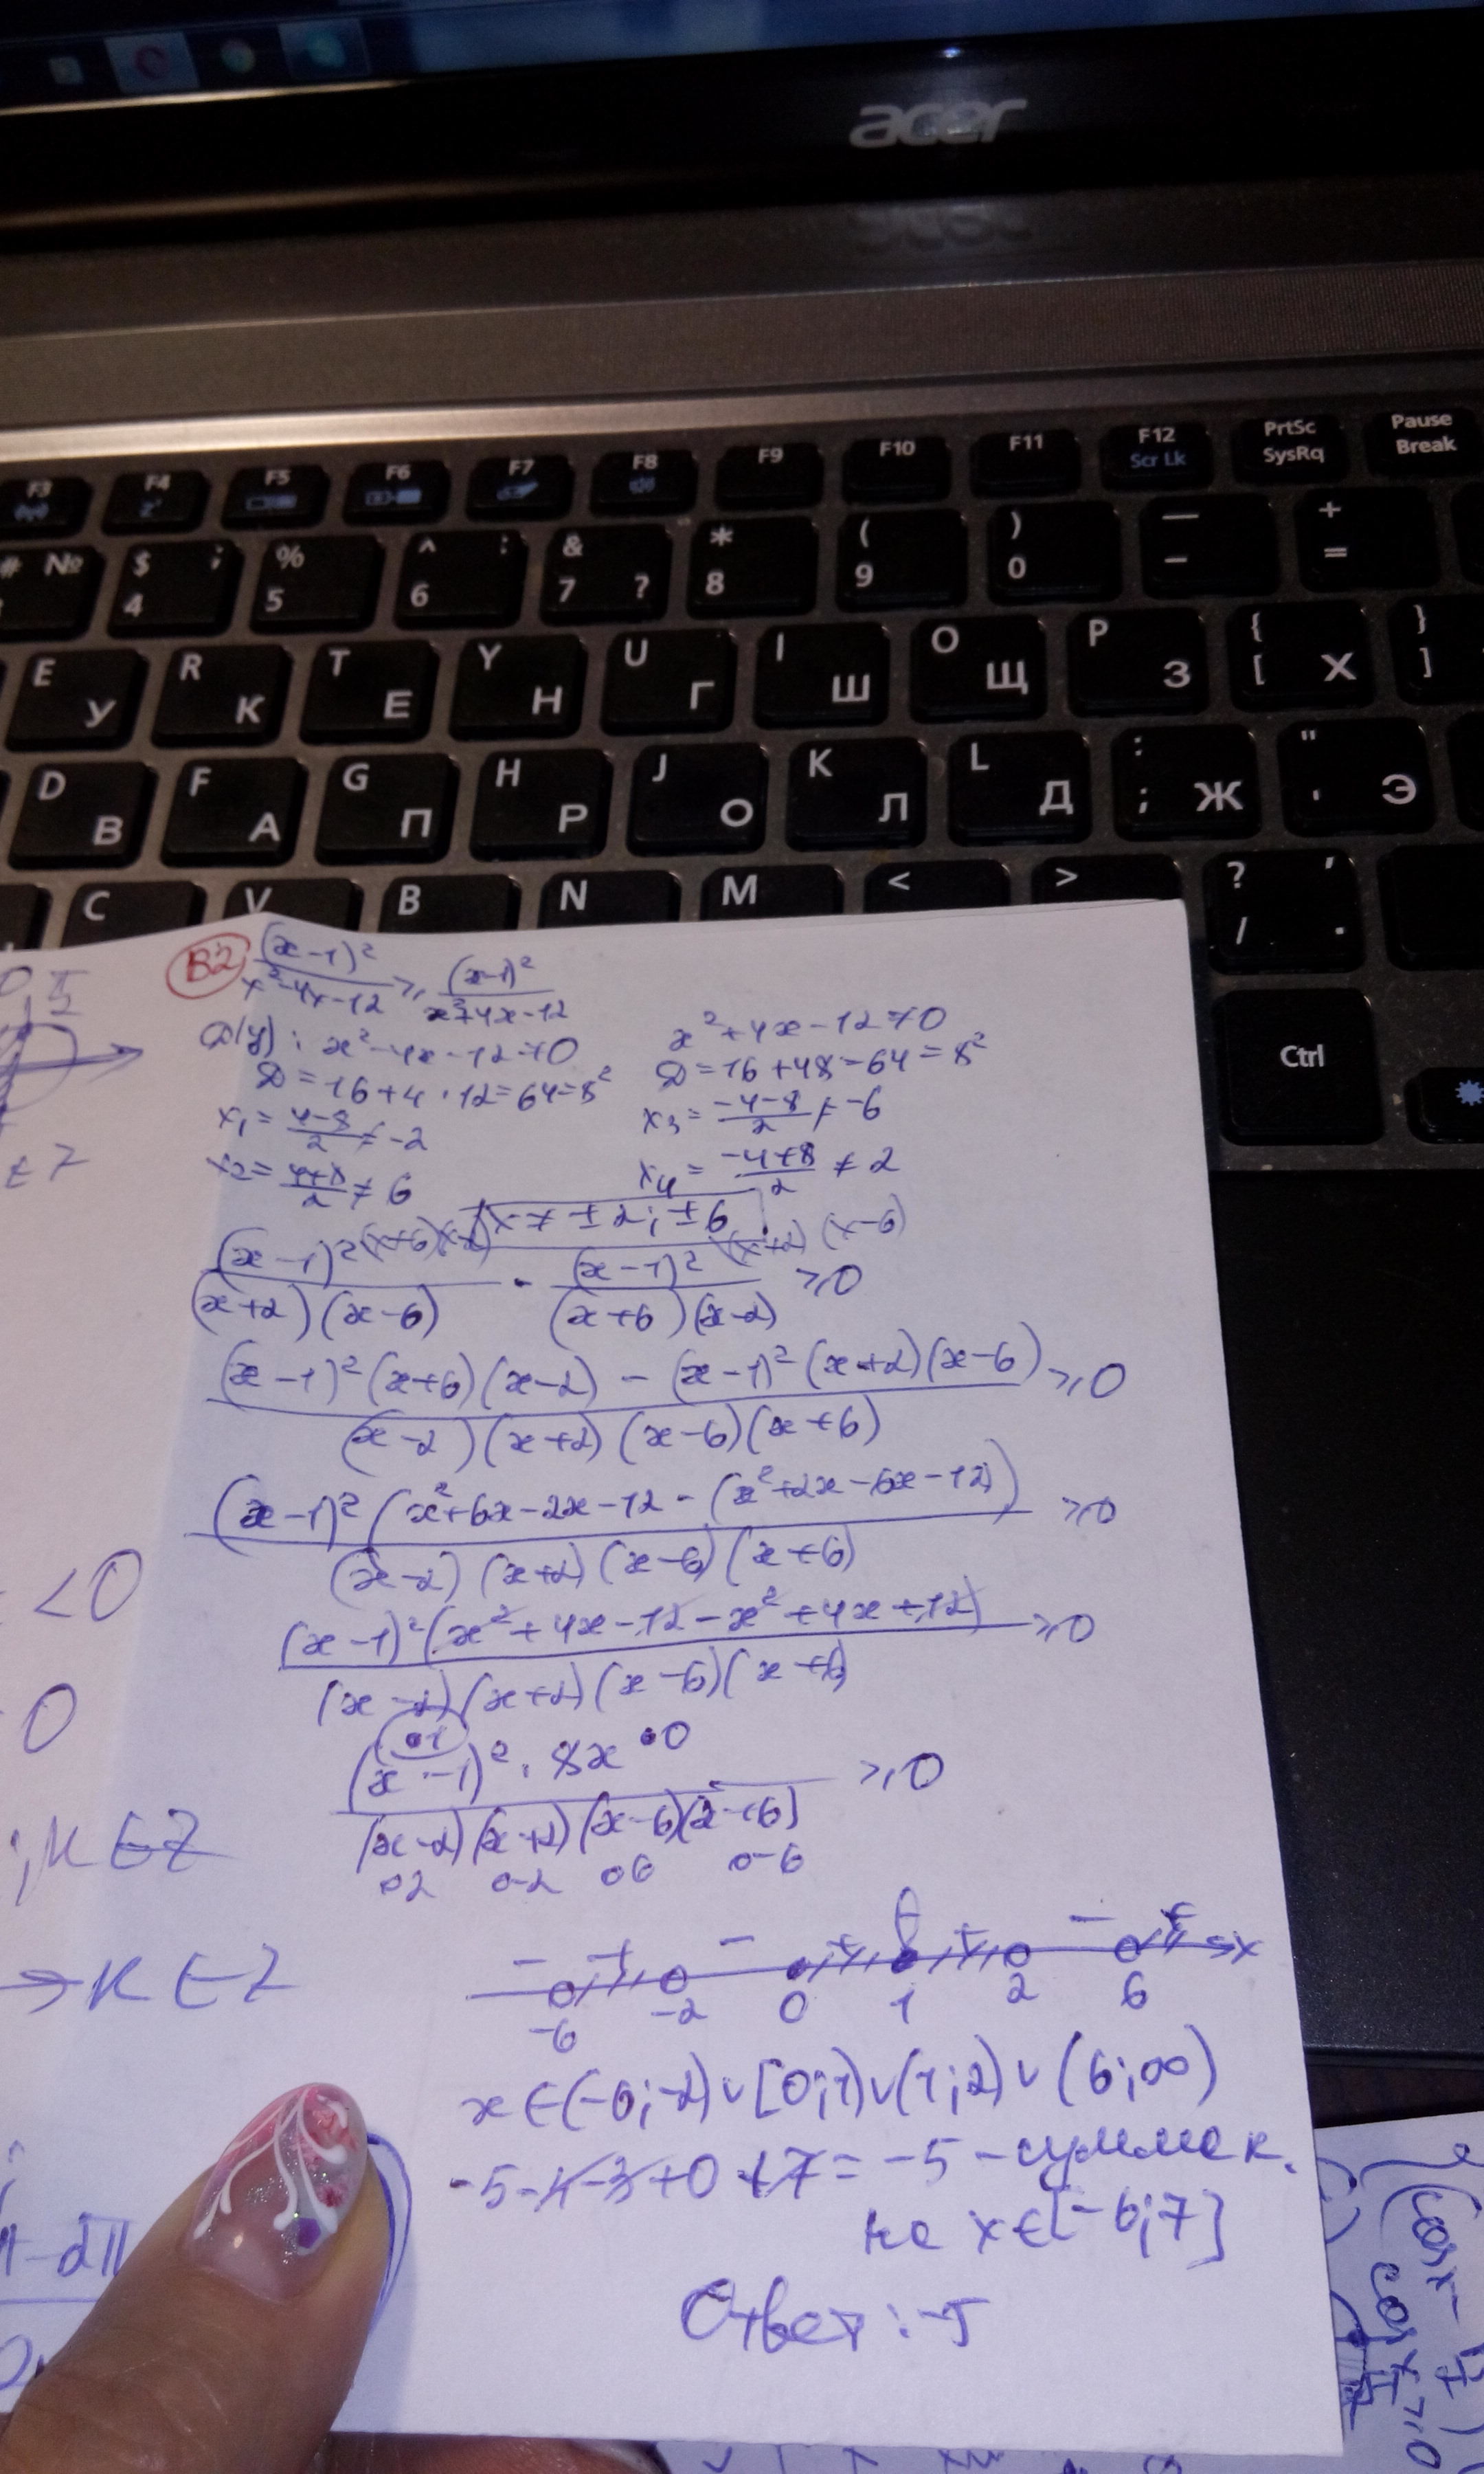 acer
F3 F4 F5 F6 F7 F8 F9 F10 F11 F12 Scr Lk PrtSc SysRq Pause Break
# № $ ; 4 % 5 ^ : 6 & 7 ? * 8 ( 9 ) 0 — - + =
E У R К T Е Y Н U Г I Ш O Щ P З { [ Х } ]
D В F А G П H Р J О K Л L Д : ; Ж " ' Э
C V B N M < > ? / , .
Ctrl
B2 (x-1)² / x²-4x-12 ≥ (x-1)² / x²+4x-12
D(y): x²-4x-12≠0 x²+4x-12≠0
D=16+4·12=64=8² D=16+48=64=8²
x₁= 4-8 / 2 ≠ -2 x₃= -4-8 / 2 ≠ -6
x₂= 4+8 / 2 ≠ 6 x₄= -4+8 / 2 ≠ 2
x≠±2; ±6
(x-1)² (x+6)(x-2) / (x+2)(x-6) - (x-1)² (x+2)(x-6) / (x+6)(x-2) ≥0
(x-1)²(x+6)(x-2) - (x-1)²(x+2)(x-6) / (x-2)(x+2)(x-6)(x+6) ≥0
(x-1)²(x²+6x-2x-12-(x²+2x-6x-12)) / (x-2)(x+2)(x-6)(x+6) ≥0
(x-1)²(x²+4x-12-x²+4x+12) / (x-2)(x+2)(x-6)(x+6) ≥0
(x-1)²·8x / (x-2)(x+2)(x-6)(x+6) ≥0
•1 •0
o2 o-2 o6 o-6
- + - + + - + x
-6 -2 0 1 2 6
x∈(-6;-2)∪[0;1)∪(1;2)∪(6;∞)
-5-4-3+0+7=-5-сумма к.
на x∈[-6;7]
Ответ: -5
0,5
∈Z
<0
0
;к∈Z
→к∈Z
π-2π